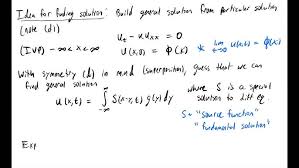 Idea for finding solution: Build general solution from particular solution
(note (d))
u_t - u u_xx = 0
(IVP) -∞ < x < ∞ u(x,0) = φ(x) * lim u(x,t) = φ(x)
With symmetry (d) in mind (superposition), guess that we can
find general solution
u(x,t) = ∫_{-∞}^{∞} S(x-y,t) g(y) dy where S is a special
solution to diff eq.
S = "source function"
"fundamental solution"
Exp